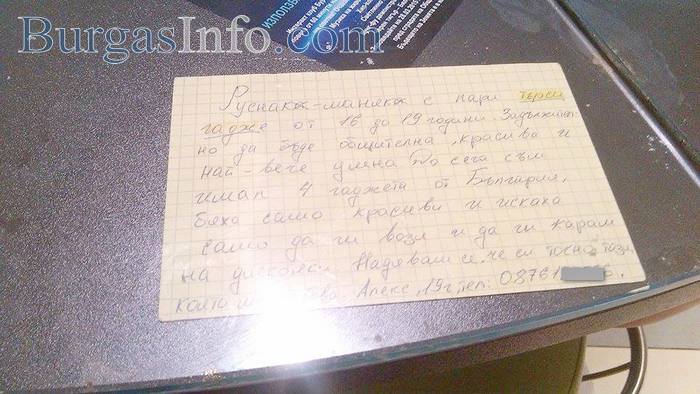 BurgasInfo.com
ИЗПОЛЗВ
Руснакж-манияк с пари търси
гадже от 16 до 19 години. Задължител
но да бъде общителна, красива и
най-вече умна. До сега съм
имал 4 гаджета от България,
бяха само красиви и искаха
само да ги возя и да ги карам
на дискотеки. Надявам се, че си точно тази,
която Алекс, 19г. тел. 08761